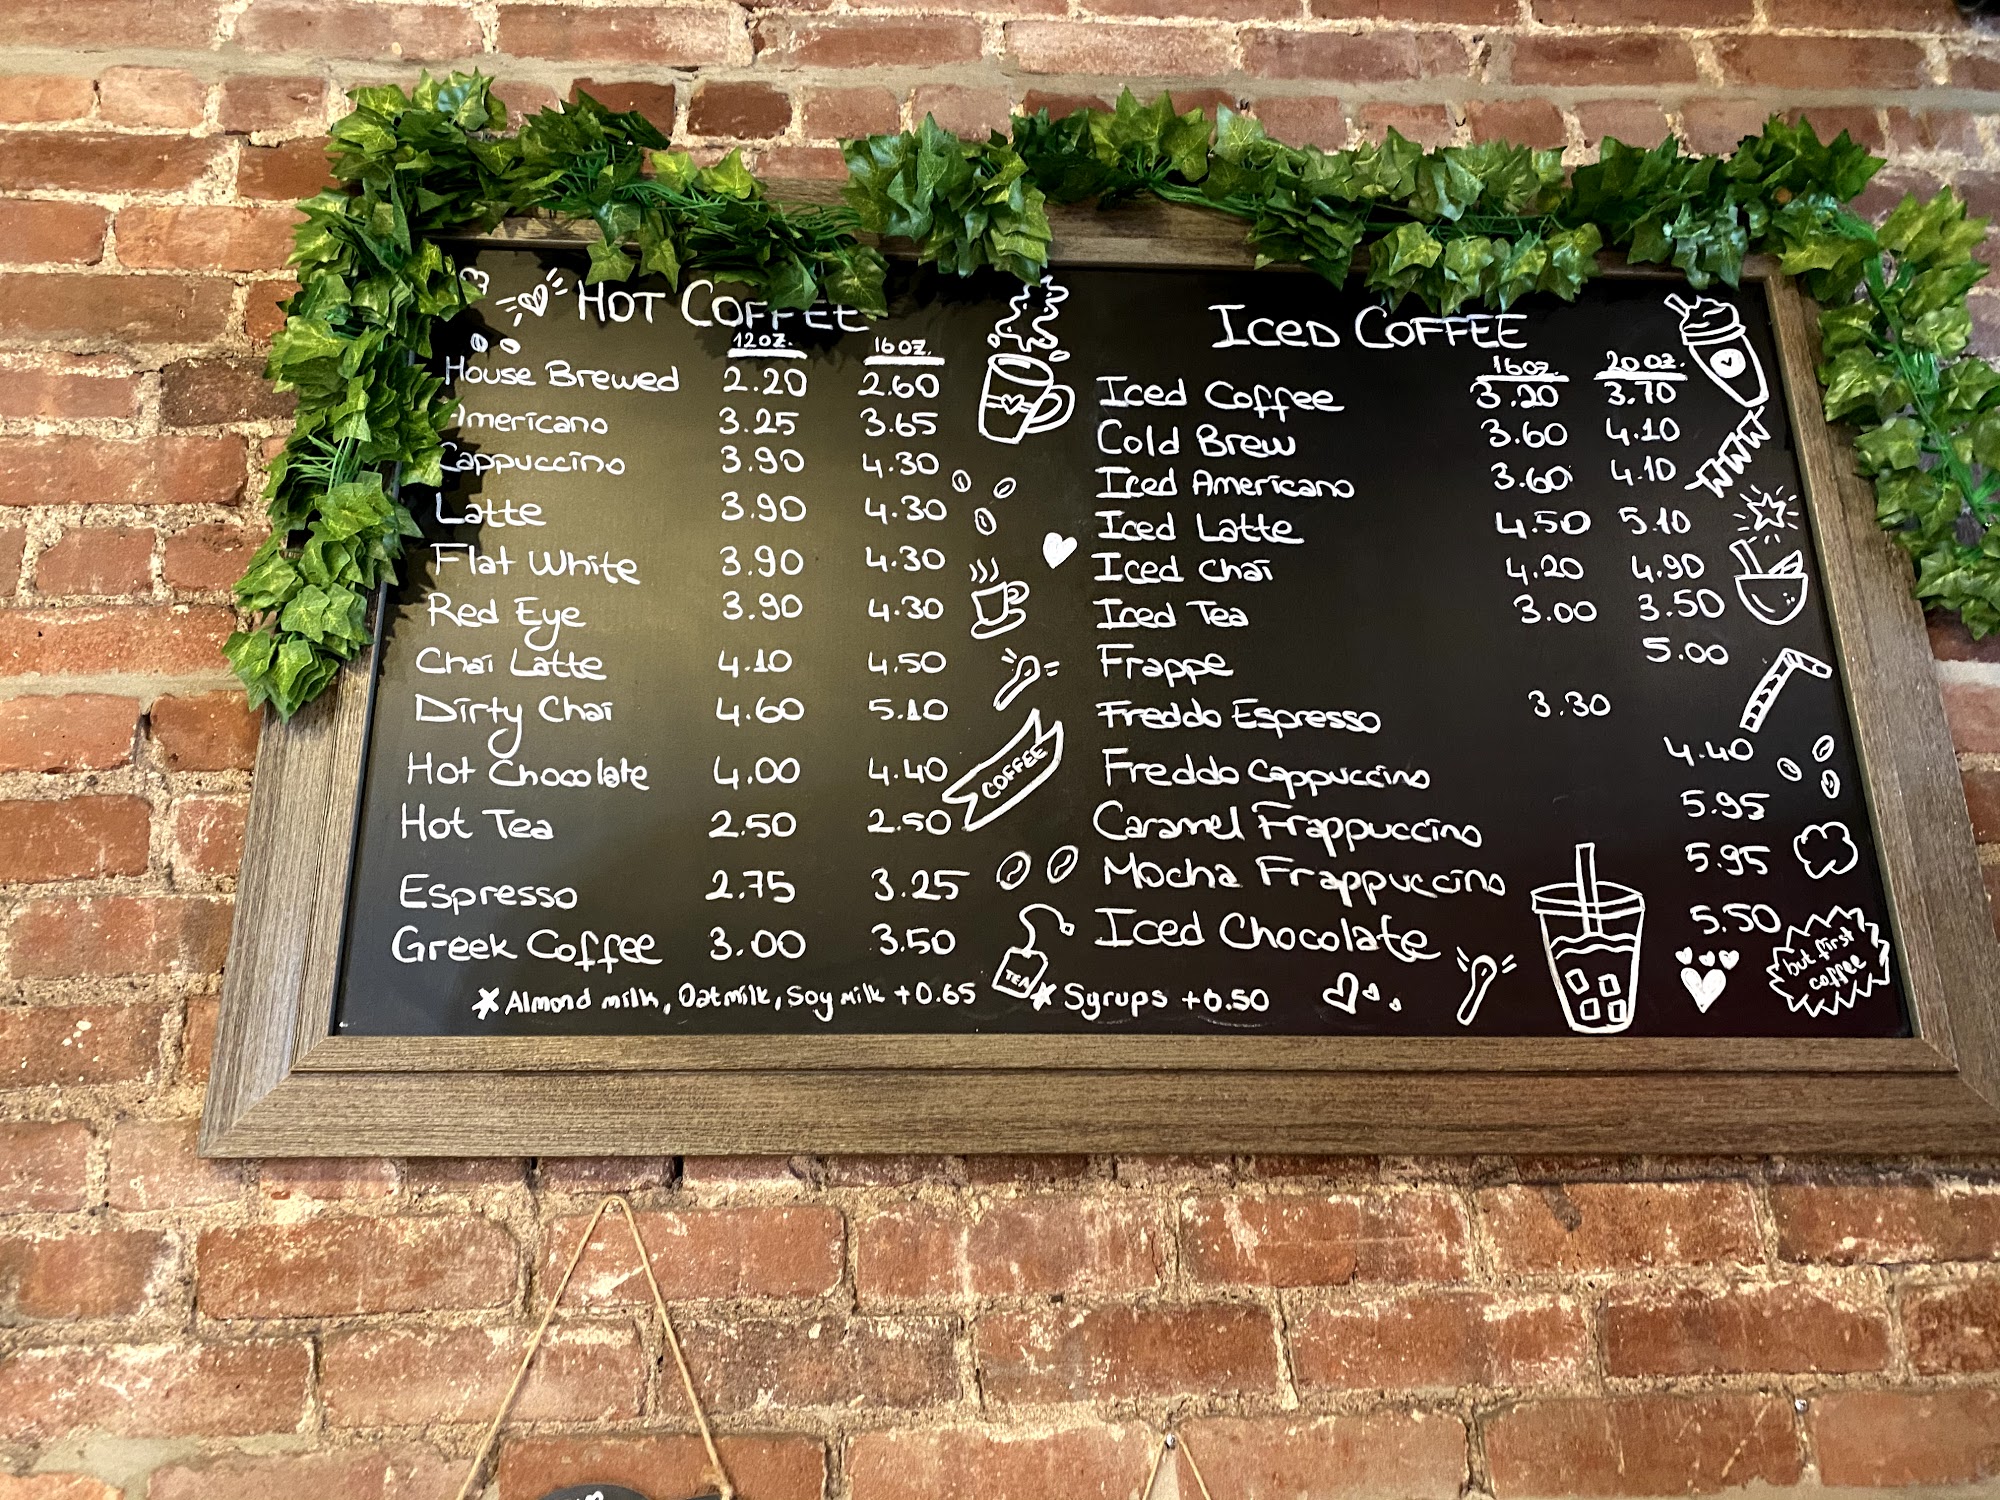 HOT COFFEE
12oz. 16oz.
House Brewed 2.20 2.60
Americano 3.25 3.65
Cappuccino 3.90 4.30
Latte 3.90 4.30
Flat White 3.90 4.30
Red Eye 3.90 4.30
Chai Latte 4.10 4.50
Dirty Chai 4.60 5.10
Hot Chocolate 4.00 4.40
Hot Tea 2.50 2.50
Espresso 2.75 3.25
Greek Coffee 3.00 3.50
Almond milk, Oatmilk, Soy milk +0.65
COFFEE
TEA
ICED COFFEE
16oz. 20oz.
Iced Coffee 3.20 3.70
Cold Brew 3.60 4.10
Iced Americano 3.60 4.10
Iced Latte 4.50 5.10
Iced Chai 4.20 4.90
Iced Tea 3.00 3.50
Frappe 5.00
Freddo Espresso 3.30
Freddo Cappuccino 4.40
Caramel Frappuccino 5.95
Mocha Frappuccino 5.95
Iced Chocolate 5.50
Syrups +0.50
but first
coffee